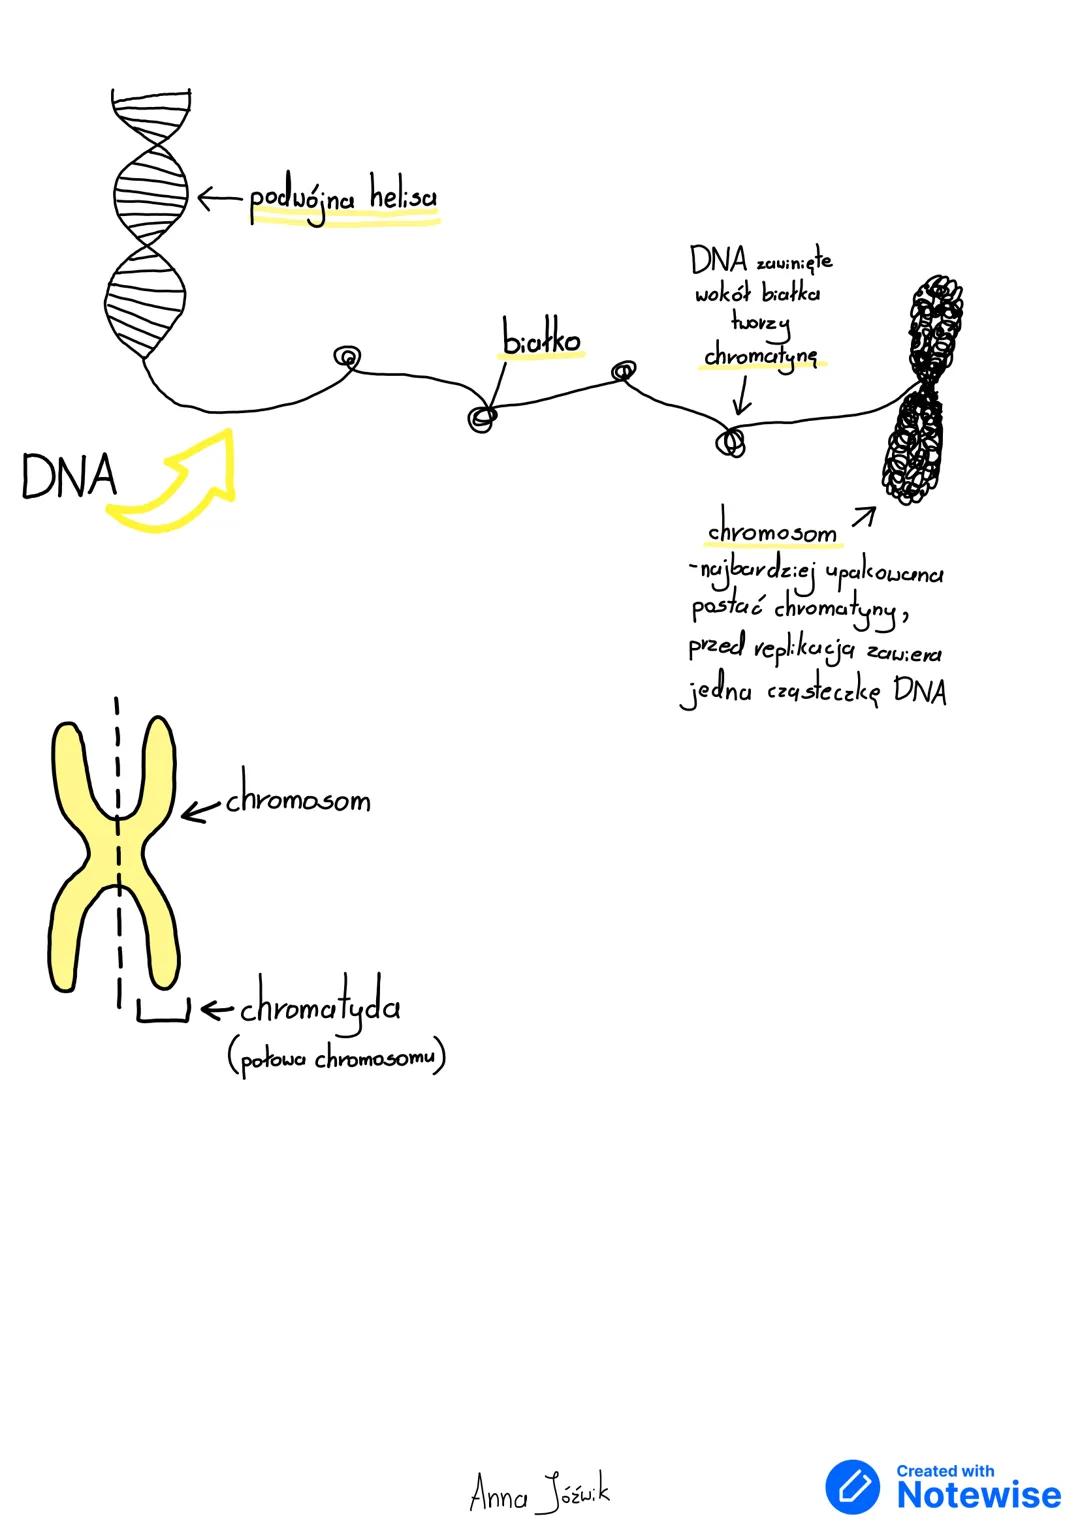 podwójna helisa
DNA
białko
DNA zawinięte
wokół białka
tworzy
chromatynę
chromosom
-najbardziej upakowana
postać chromatyny,
przed replikacją zawiera
jedną cząsteczkę DNA
chromosom
chromatyda
(połowa chromosomu)
Anna Jóźwik
Created with
Notewise